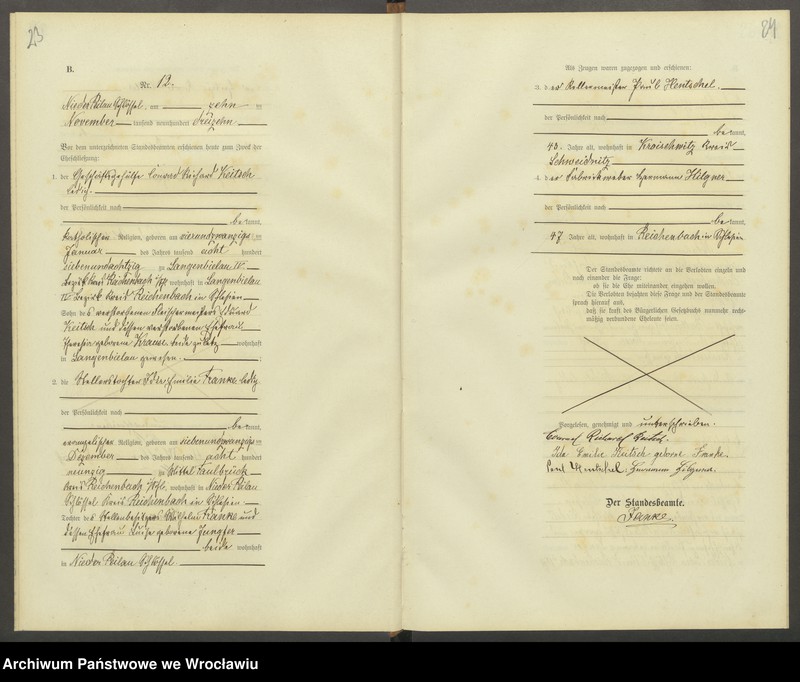 23
B.
Nr. 12.
Nieder Peilau Schlössel am zehn ten
November tausend neunhundert dreizehn
Vor dem unterzeichneten Standesbeamten erschienen heute zum Zweck der
Eheschließung:
1. der Geschäftsgehülfe Conrad Richard Keitsch
ledig.
der Persönlichkeit nach
be kannt,
katholischer Religion, geboren am vierundzwanzigs ten
Januar des Jahres tausend acht hundert
siebenundachtzig zu Langenbielau IV.
Bezirk Kreis Reichenbach wohnhaft in Langenbielau
Bezirk Kreis Reichenbach in Schlesien
Sohn des verstorbenen Fleischermeisters Eduard
Keitsch und dessen verstorbenen Ehefrau
Theresia geborene Krause beide zuletzt wohnhaft
in Langenbielau gewesen.
2. die Stellentochter Ida Emilie Franke ledig
der Persönlichkeit nach
be kannt,
evangelischer Religion, geboren am siebenundzwanzigs ten
Dezember des Jahres tausend acht hundert
neunzig zu Mittel Faulbrück
Kreis Reichenbach wohnhaft in Nieder Peilau
Schlössel Kreis Reichenbach in Schlesien
Tochter des Stellenbesitzers Wilhelm Franke und
dessen Ehefrau geborene Jungfer
beide wohnhaft
in Nieder Peilau Schlössel
24
Als Zeugen waren zugezogen und erschienen:
3. der Kellermeister Paul Hentschel
der Persönlichkeit nach
be kannt,
43 Jahre alt, wohnhaft in Kroischwitz Kreis
Schweidnitz
4. der Fabrikweber Hermann Hilgner
der Persönlichkeit nach
be kannt,
47 Jahre alt, wohnhaft in Reichenbach in Schlesien
Der Standesbeamte richtete an die Verlobten einzeln und
nach einander die Frage:
ob sie die Ehe miteinander eingehen wollen.
Die Verlobten bejahten diese Frage und der Standesbeamte
sprach hierauf aus,
daß sie kraft des Bürgerlichen Gesetzbuchs nunmehr recht-
mäßig verbundene Eheleute seien.
Vorgelesen, genehmigt und unterschrieben.
Conrad Richard Keitsch.
Ida Emilie Keitsch geborene Franke.
Paul Hentschel, Hermann Hilgner.
Der Standesbeamte.
Franke.
Archiwum Państwowe we Wrocławiu